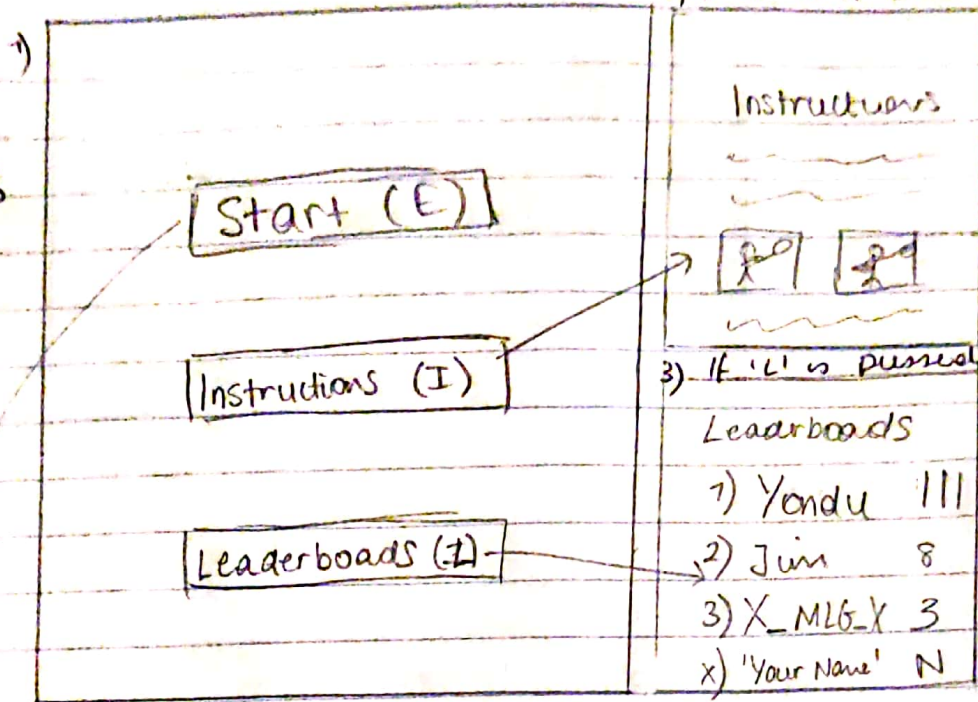 1)
Start (E)
Instructions (I)
Leaderboads (L)
Instructions
3) If 'L' is pressed
Leaderboads
1) Yondu 111
2) Jim 8
3) X_MLG_X 3
x) 'Your Name' N